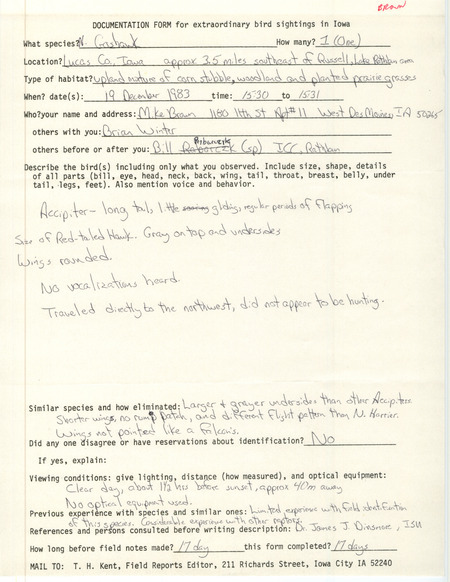 BROWN
DOCUMENTATION FORM for extraordinary bird sightings in Iowa
What species? N. Goshawk How many? 1 (One)
Location? Lucas Co. Iowa approx 3.5 miles southeast of Russell, Lake Rathbun area
Type of habitat? upland mixture of corn stubble, woodland and planted prairie grasses
When? date(s): 19 December 1983 time: 15:30 to 1531
Who? your name and address: Mike Brown 1180 11th St Apt# 11 West Des Moines, IA 50265
others with you: Brian Winter
others before or after you: Bill (sp) ICC, Rathbun
Describe the bird(s) including only what you observed. Include size, shape, details
of all parts (bill, eye, head, neck, back, wing, tail, throat, breast, belly, under
tail, legs, feet). Also mention voice and behavior.
Accipiter - long tail, little gliding, regular periods of flapping
Size of Red-tailed Hawk. Gray on top and undersides
Wings rounded.
No vocalizations heard.
Traveled directly to the northwest, did not appear to be hunting.
Similar species and how eliminated: Larger + grayer undersides than other Accipiters
Shorter wings, no rump patch, and different flight pattern than N. Harrier.
Wings not pointed like a falcon's.
Did any one disagree or have reservations about identification? No
If yes, explain:
Viewing conditions: give lighting, distance (how measured), and optical equipment:
Clear day, about 1 1/2 hrs before sunset, approx 40m away
No optical equipment used.
Previous experience with species and similar ones: Limited experience with field identification
of this species. Considerable experience with other raptors.
References and persons consulted before writing description: Dr. James J. Dinsmore, ISU
How long before field notes made? 17 day this form completed? 17 days
MAIL TO: T. H. Kent, Field Reports Editor, 211 Richards Street, Iowa City IA 52240